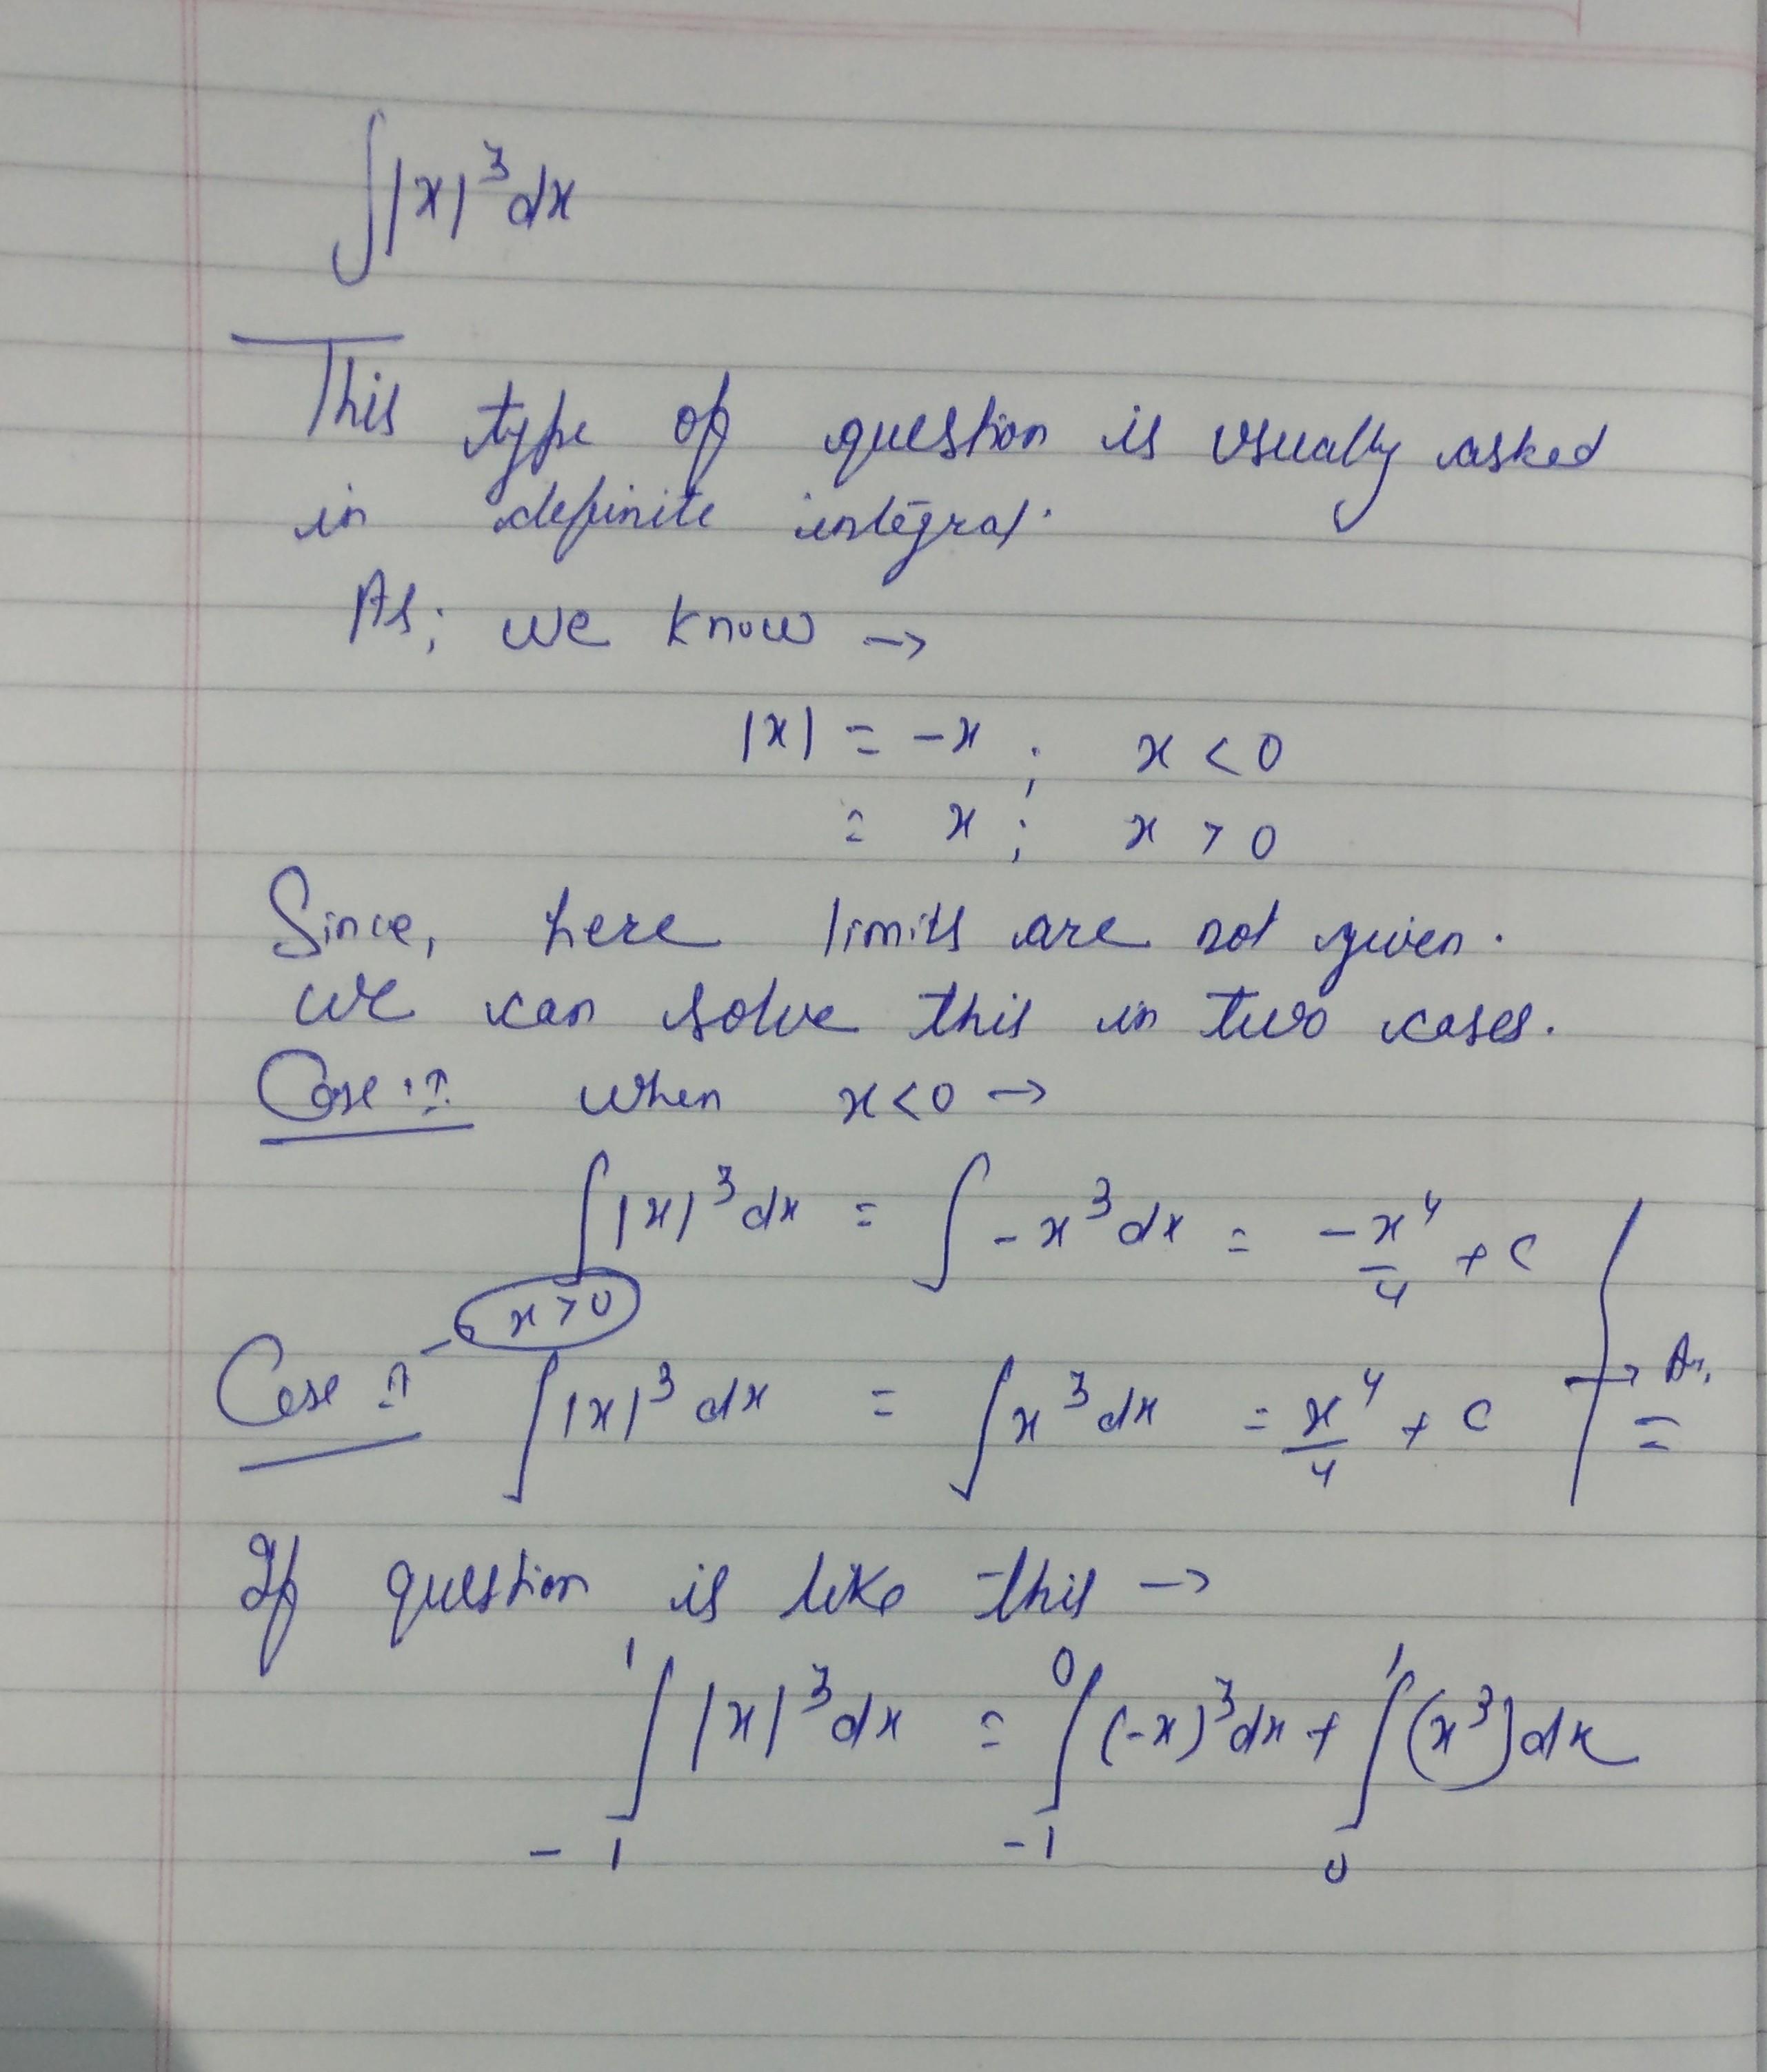 ∫|x|³dx
This type of question is usually asked
in definite integral.
As; we know →
|x| = -x ; x < 0
= x ; x > 0
Since, here limits are not given.
we can solve this in two cases.
Case I: when x<0 →
∫|x|³dx = ∫-x³dx = -x⁴/4 + C
x>0
Case II ∫|x|³dx = ∫x³dx = x⁴/4 + C → An.
If question is like this →
∫₋₁¹|x|³dx = ∫₋₁⁰(-x)³dx + ∫₀¹(x³)dx